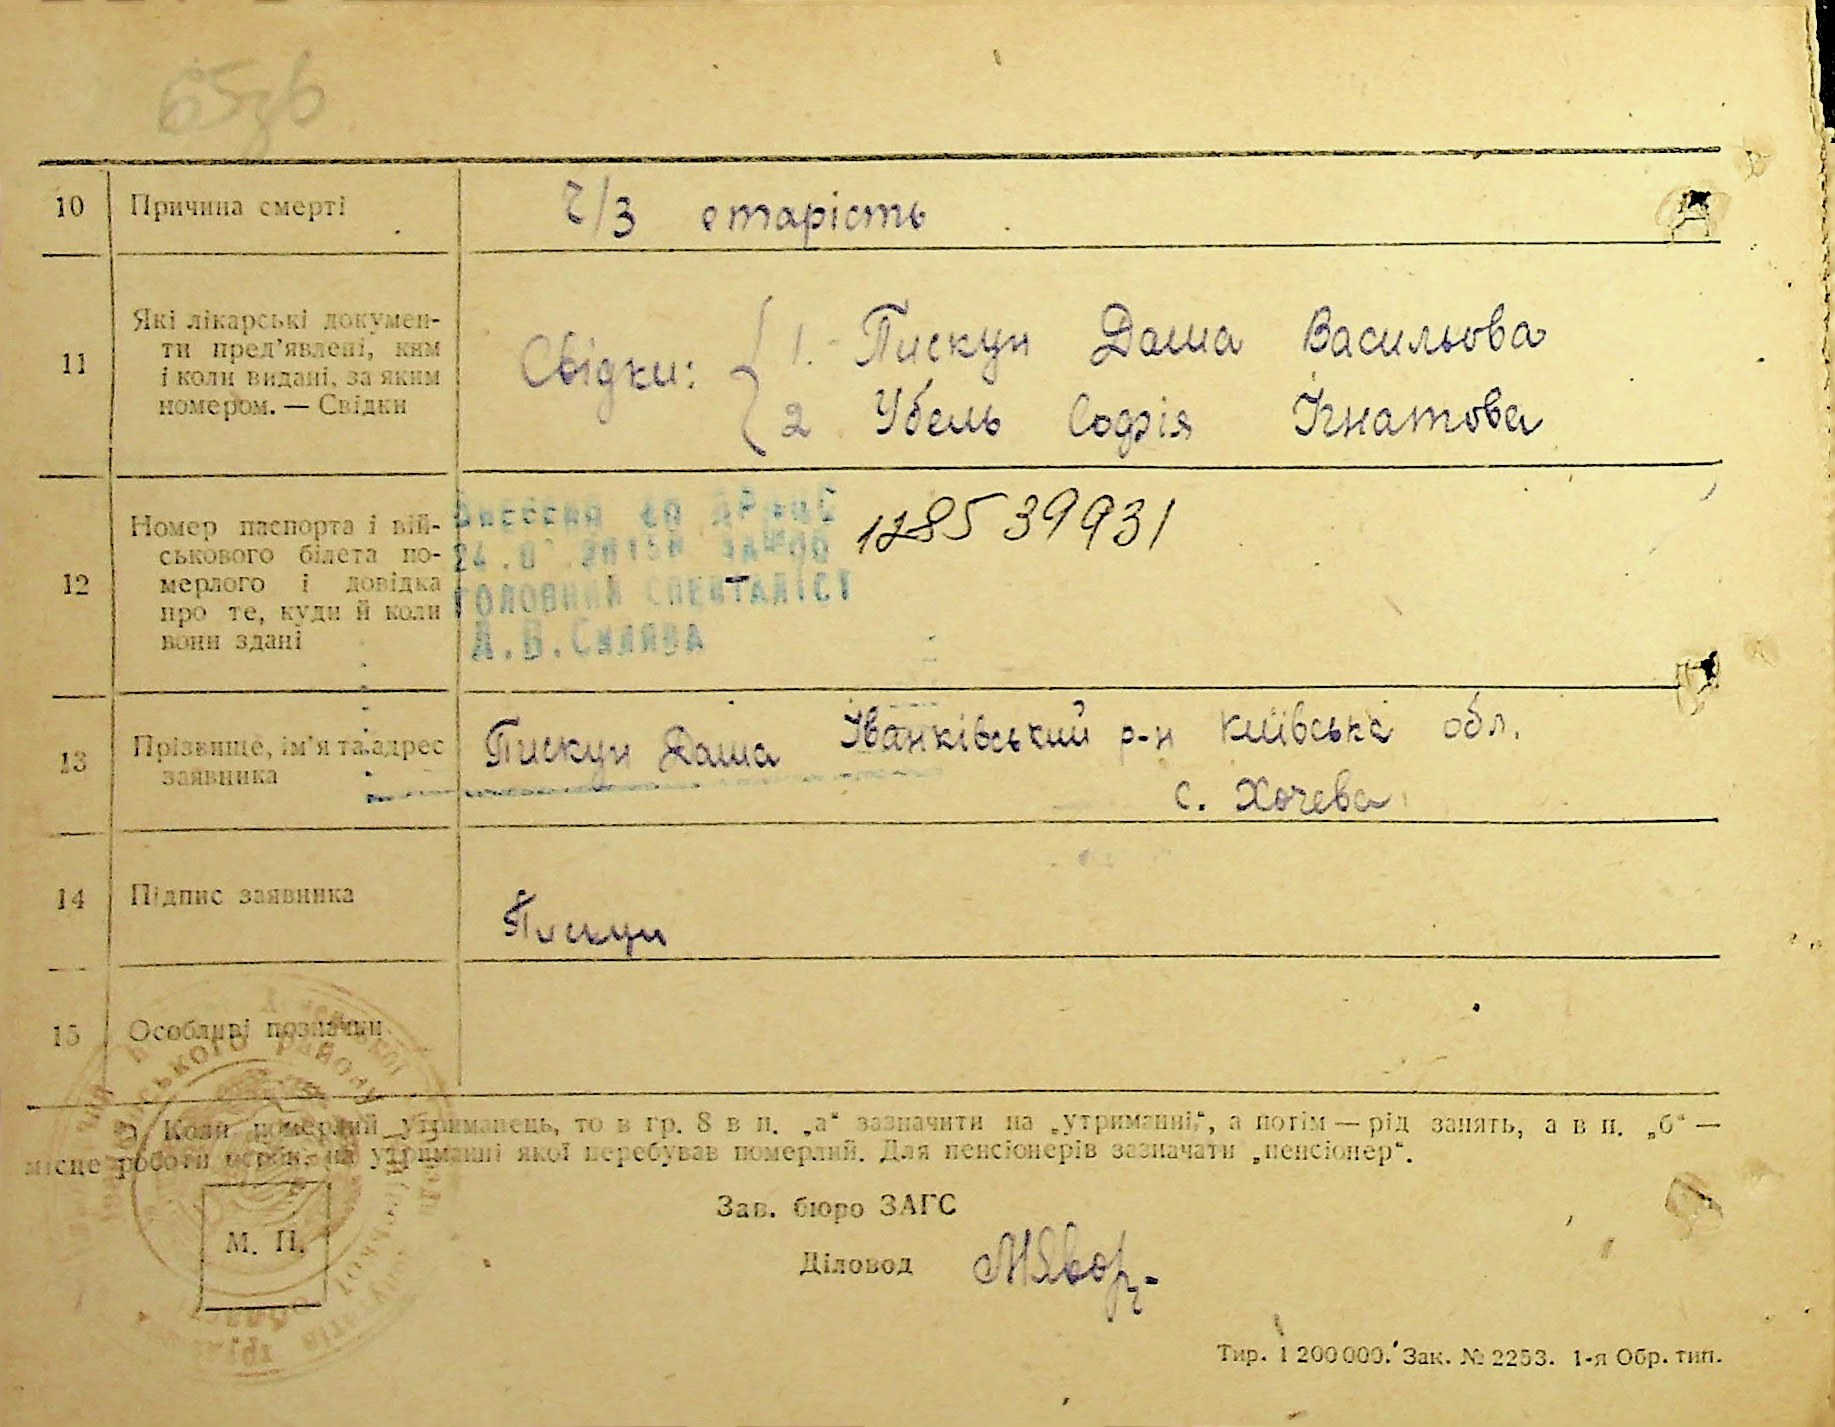 10 Причина смерті ч/з старість
11 Які лікарські докумен-
ти пред’явлені, ким
і коли видані, за яким
номером. — Свідки
Свідки: 1. Пискун Даша Васильова
2 Убель Софія Ігнатова
12 Номер паспорта і вій-
ськового білета по-
мерлого і довідка
про те, куди й коли
вони здані
128539931
ГОЛОВНИЙ СПЕЦІАЛІСТ
13 Прізвище, ім’я та адрес
заявника
Пискун Даша Іванківський р-н Київська обл.
с. Хочева
14 Підпис заявника
Пискун
15 Особливі позначки
Коли померлий утриманець, то в гр. 8 в п. „а“ зазначити на „утриманні“, а потім — рід занять, а в п. „б“ —
місце роботи особи, на утриманні якої перебував померлий. Для пенсіонерів зазначати „пенсіонер“.
М. П.
Зав. бюро ЗАГС
Діловод
Тир. 1 200 000. Зак. № 2253. 1-я Обр. тип.